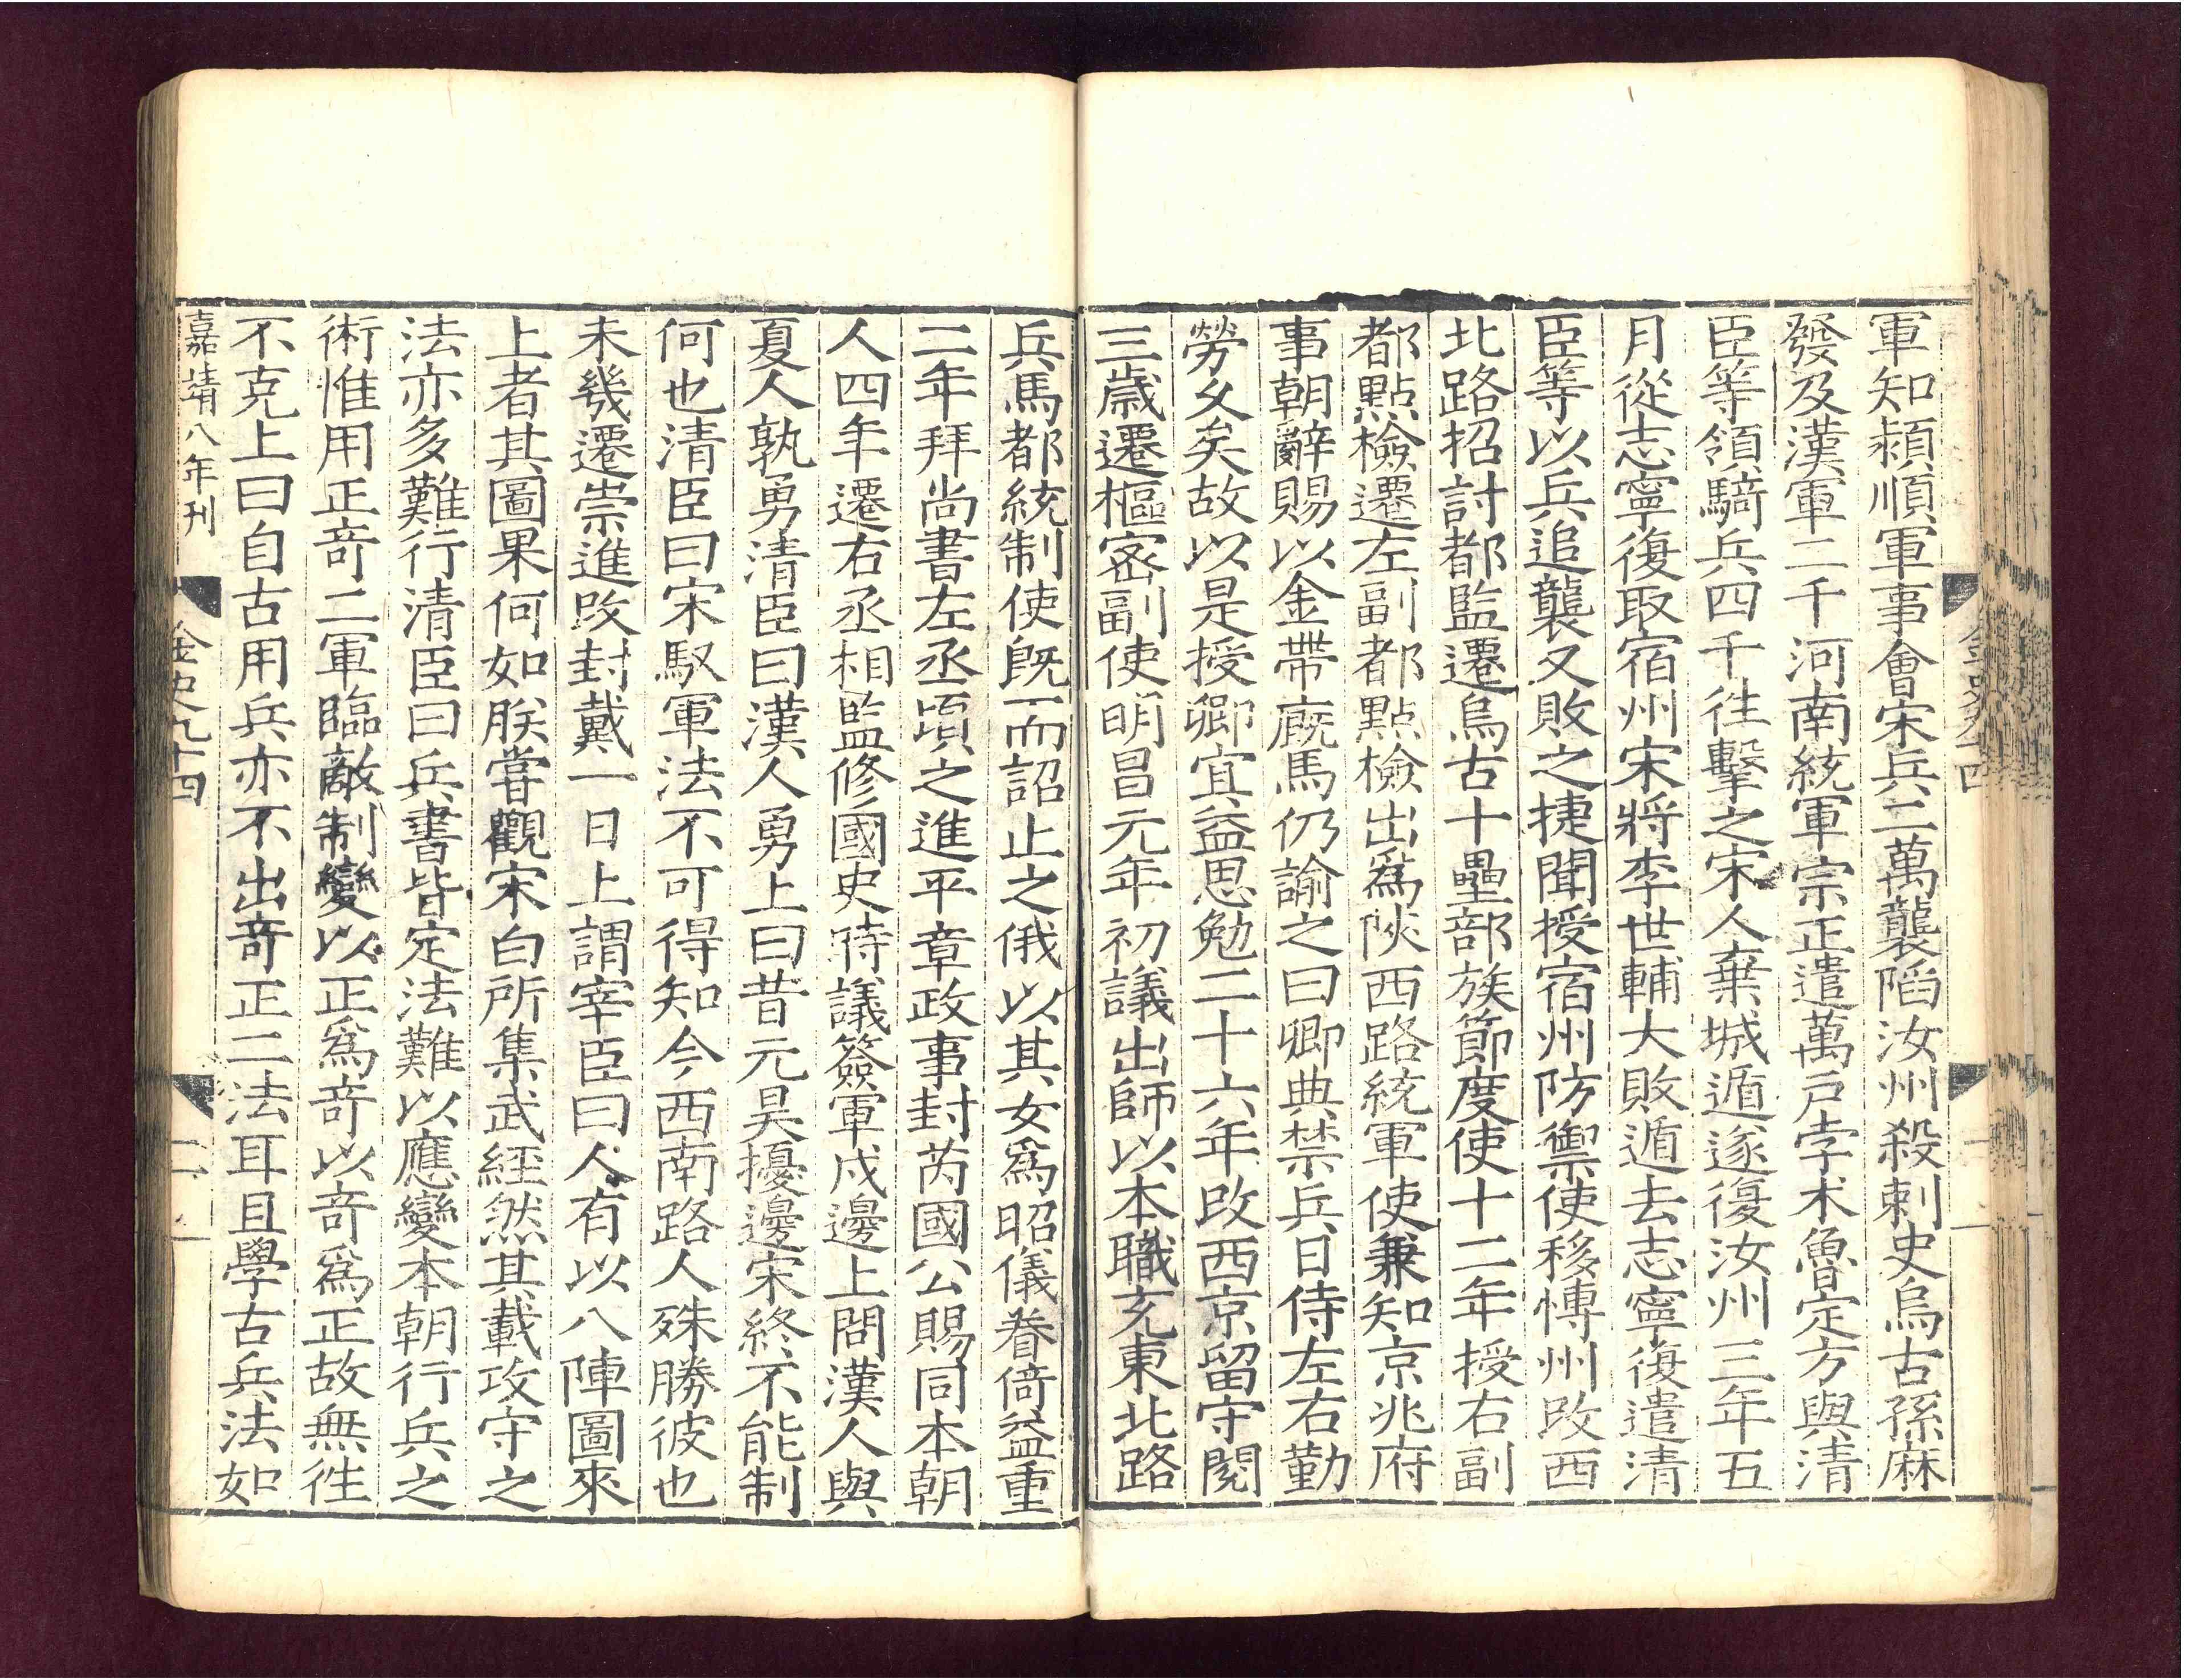 軍知潁順軍事會宋兵二萬襲陷汝州殺刺史烏古孫麻
發及漢軍二千河南統軍宗正遣萬戶孛术魯定方與清
臣等領騎兵四千往擊之宋人棄城遁遂復汝州三年五
月從志寧復取宿州宋將李世輔大敗遁去志寧復遣清
臣等以兵追襲又敗之捷聞授宿州防禦使移博州改西
北路招討都監遷烏古十壘部族節度使十二年授右副
都點檢遷左副都點檢出爲陜西路統軍使兼知京兆府
事朝辭賜以金帶廐馬仍諭之曰卿典禁兵日侍左右勤
勞久矣故以是授卿宜益思勉二十六年改西京留守閱
三歲遷樞密副使明昌元年初議出師以本職充東北路
兵馬都統制使旣而詔止之俄以其女爲昭儀眷倚益重
二年拜尚書左丞頃之進平章政事封芮國公賜同本朝
人四年遷右丞相監修國史時議簽軍戍邊上問漢人與
夏人孰勇清臣曰漢人勇上曰昔元昊擾邊宋終不能制
何也清臣曰宋馭軍法不可得知今西南路人殊勝彼也
未幾遷崇進改封戴一日上謂宰臣曰人有以八陣圖來
上者其圖果何如朕嘗觀宋白所集武經然其載攻守之
法亦多難行清臣曰兵書皆定法難以應變本朝行兵之
術惟用正竒二軍臨敵制變以正爲竒以竒爲正故無往
不克上曰自古用兵亦不出竒正二法耳且學古兵法如
嘉靖八年刊
金史九十四
二